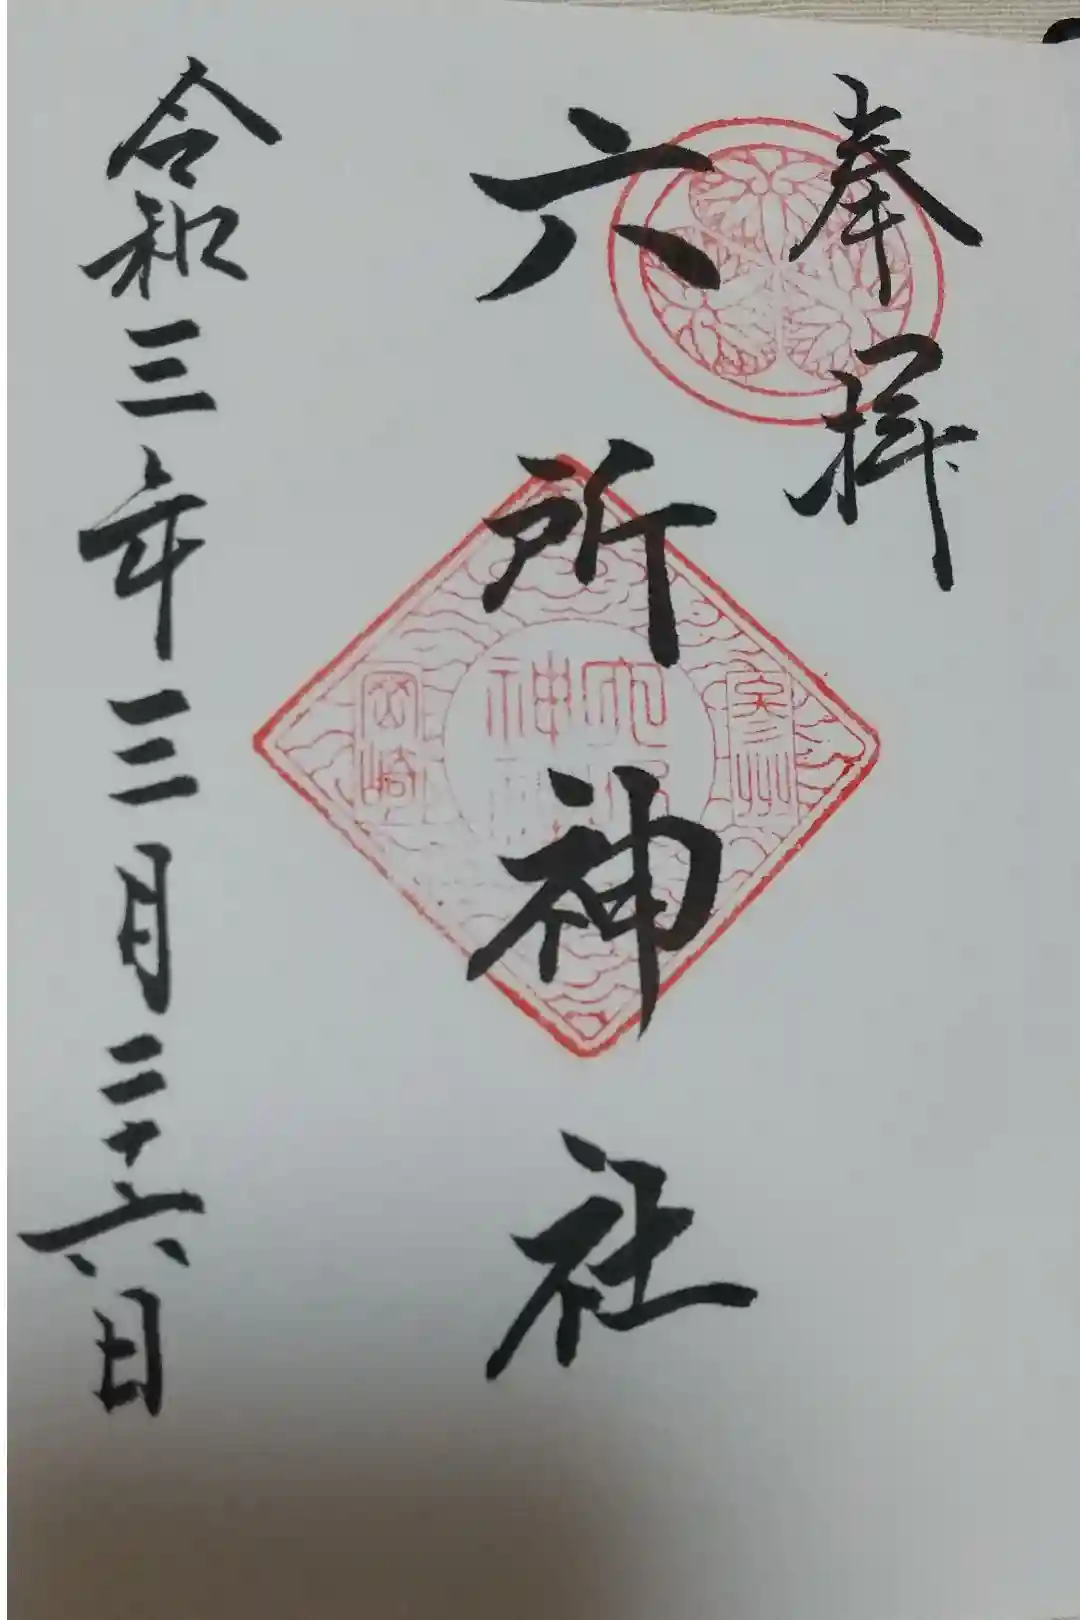 奉拝
六所神社
参州
六所
神社
岡崎
令和三年三月二十六日